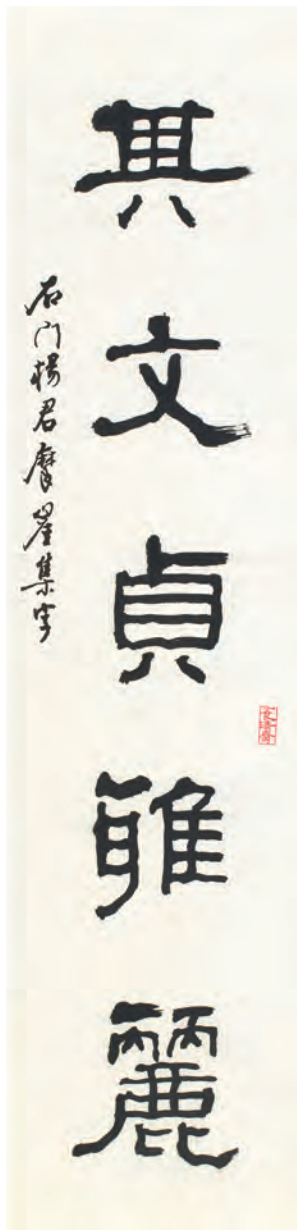 其文貞雅麗
石门楊君摩崖集字